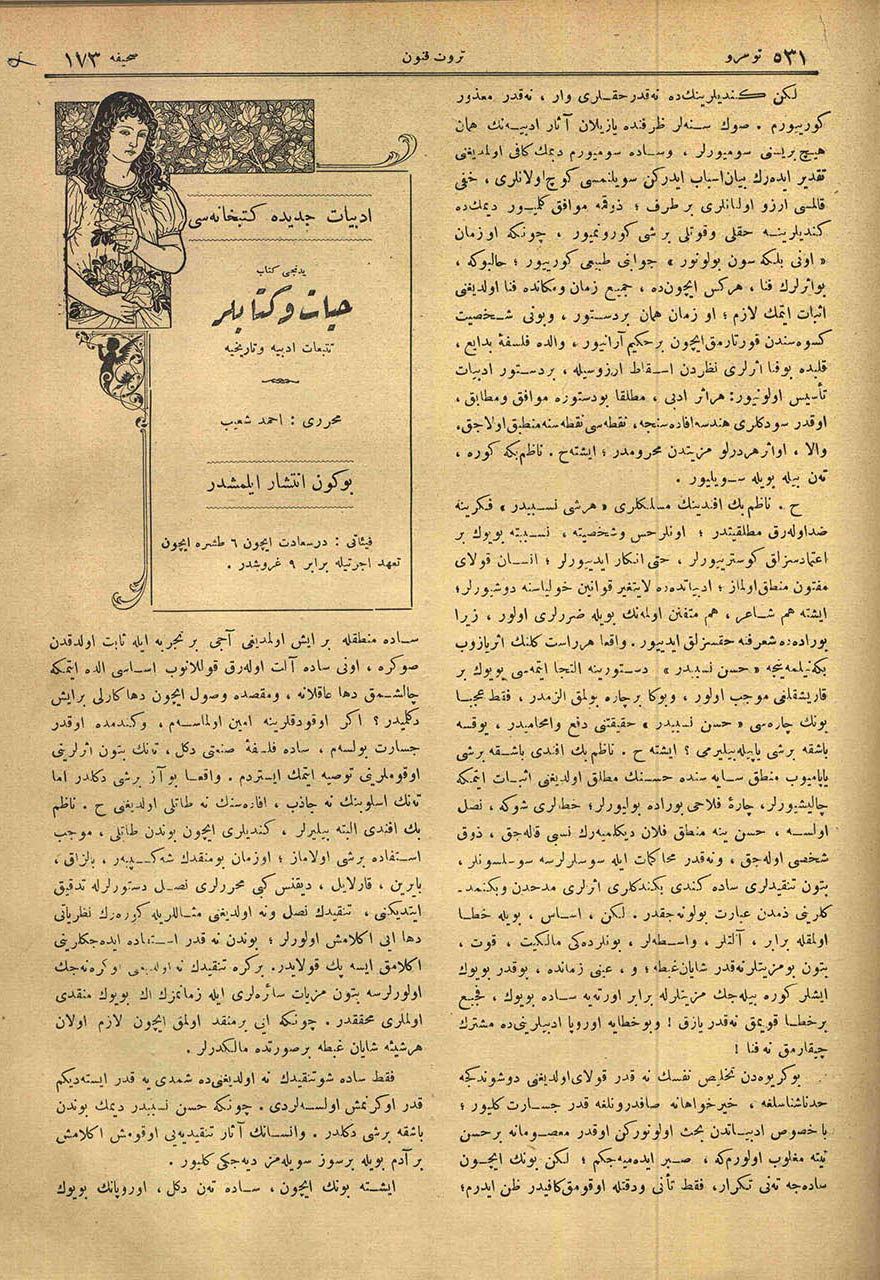 ٥٣١ نومرو
ثروت فنون
صحیفه ١٧٣
لکن کندیلرینك‌ده نه‌قدر حقلری وار ، نه‌قدر معذور
کوریبورم . صوك سنه‌لر ظرفنده یازیلان آثار ادبیه‌نك همان
هیچ بریسنی سومیورلر ، وساده سومیورم دیمك کافی اولمدیغنی
تقدیر ایده‌رك بیان اسباب ایدرکن سویلنمسی کوچ اولانلری ، خفی
قالمسی آرزو اولنانلری بر طرف ؛ ذوقمه موافق کلمیور دیمك‌ده
کندیلرینه حقلی وقوتلی برشی کورونمیور ، چونکه اوزمان
« اونی بلکه سون بولونور » جوابنی طبیعی کورییور ؛ حالبوکه ،
بواثرلرك فنا ، هرکس ایچون‌ده ، جمیع زمان ومکانده فنا اولدیغنی
اثبات ایتمك لازم ؛ او زمان همان بردستور ، وبونی شخصیت
کسوه‌سندن قورتارمق‌ایچون برحکیم آرانیور ، والده فلسفهٔ بدایع ،
قلبده بوفنا اثرلری نظردن اسقاط ارزوسیله ، بردستور ادبیات
تأسیس اولونیور: هراثر ادبی ، مطلقا بودستوره موافق ومطابق ،
اوقدر سودکلری هندسه افاده‌سنجه، نقطه‌سی نقطه‌سنه منطبق اولاجق،
والا ، اواثر هردرلو مزیتدن محرومدر ؛ ایشته ح . ناظم بکه کوره ،
تەن بیله بویله سویلیور .
ح . ناظم بك افندینك مسلکلری « هرشی نسبیدر » فکرینه
ضد اوله‌رق مطلقیتدر ؛ اونلر حس وشخصیته ، نسبیته بویوك بر
اعتمادسزلق کوستریبورلر ، حتی انکار ایدییورلر ؛ انسان قولای
مفتون منطق اولماز ؛ ادبیاتده‌ده لایتغیر قوانین خولیاسنه دوشیورلر؛
ایشته هم شاعر ، هم متفنن اولمه‌نك بویله ضررلری اولور ، زیرا
بوراده‌ده شعر فنه حقسزلق ایدییور . واقعا هر راست کلنك اثریازوب
بکه‌نیلمه‌ینجه « حسن نسبیدر » دستورینه التجا ایتمه‌سی بویوك بر
قاریشقلغی موجب اولور ، وبوکا برچاره بولمق الزمدر ، فقط عجبا
بونك چاره‌سی « حسن نسبیدر » حقیقتنی دفع وامحامیدر ، یوقسه
باشقه برشی یاپیله‌بیلیرمی ؟ ایشته ح . ناظم بك افندی باشقه برشی
یاپامیوب منطق سایه سنده حسنك مطلق اولدیغنی اثبات ایتمکه
چالیشیورلر، چارهٔ فلاحی بوراده بولیورلر؛ خطالری شوکه ، نصل
اولسه ، حسن ینه منطق فلان دیکلمیه‌رك نسبی قاله‌جق ، ذوق
شخصی اوله‌جق ، ونه‌قدر محاکمات ایله سوسلرلرسه سوسلسونلر ،
بتون تنقیدلری ساده کندی بکندکلری اثرلری مدحدن وبکنمد-
کلرینی ذمدن عبارت بولونه‌جقدر . لکن ، اساس ، بویله خطا
اولمقله برابر ، آلتلر ، واسطه‌لر ، بونلرده‌کی مالکیت ، قوت ،
بتون بومزیتلر نه‌قدر شایان غبطه ؛ و ، عینی زمانده ، بوقدر بویوك
ایشلر کوره بیله‌جك مزیتلرله برابر اورته‌یه ساده بویوك ، فجیع
برخطا قویمق نه‌قدر یازق ! وبوخطایه اوروپا ادبیلرینی‌ده مشترك
چیقارمق نه فنا !
بوکریوه‌دن تخلیص نفسك نه قدر قولای‌اولدیغنی دوشوندکجه
حدناشناسلغه ، خیرخواهانه صافدرونلغه قدر جسارت کلیور ؛
باخصوص ادبیاتدن بحث اولونورکن اوقدر معصومانه برحسن
نیته مغلوب اولورم‌که ، صبر ایده‌میه‌جکم ؛ لکن بونك ایچون
ساده‌جه تەنی تکرار، فقط تأنی ودقتله اوقومق کافیدر ظن ایدرم؛
ادبیات جدیده کتبخانه‌سی
یدنجی کتاب
حیات و کتابلر
تتبعات ادبیه وتاریخیه
محرری : احمد شعیب
بوکون انتشار ایلمشدر
فیئاتی : درسعادت ایچون ٦ طشره ایچون
تعهد اجرتیله برابر ٩ غروشدر .
ساده منطقله بر ایش اولمدیغی آجی بر تجربه ایله ثابت اولدقدن
صوکره ، اونی ساده آلت اوله‌رق قوللانوب اساسی الده ایتمکه
چالشمق دها عاقلانه ، ومقصده وصول ایچون دها کارلی برایش
دکلیدر؟ اکر اوقودقلرینه امین اولماسه‌م ، وکندمده اوقدر
جسارت بولسه‌م ، ساده فلسفهٔ صنعتی دکل ، تەنك بتون اثرلرینی
اوقوملرینی توصیه ایتمك ایستردم . واقعا بو آز برشی دکلدر اما
تەنك اسلوبنك نه جاذب ، افاده‌سنك نه طاتلی اولدیغنی ح . ناظم
بك افندی البته بیلیرلر ، کندیلری ایچون بوندن طاتلی ، موجب
استفاده برشی اولاماز ؛ اوزمان بومنقدك شه‌کسپیر ، بالزاق ،
بایرین ، قارلایل ، دیقنس کبی محررلری نصل دستورلرله تدقیق
ایتدیکنی ، تنقیدك نصل ونه اولدیغنی مثاللریله کوره‌رك نظریاتی
دها ایی اکلامش اولورلر ؛ بوندن نه قدر استفاده ایده‌جکلرینی
اکلامق ایسه پك قولایدر. برکره تنقیدك نه اولدیغنی اوکره‌نه‌جك
اولورلرسه بتون مزیات سائره‌لری ایله زمانمزك اك بویوك منقدی
اولملری محققدر . چونکه ایی برمنقد اولمق ایچون لازم اولان
هرشیئه شایان غبطه برصورتده مالکدرلر .
فقط ساده شو تنقیدك نه اولدیغنی‌ده شمدی یه قدر ایسته‌دیکم
قدر اوکرنمش اولسه‌لردی . چونکه حسن نسبیدر دیمك بوندن
باشقه برشی دکلدر . وانسانك آثار تنقیدیه‌یی اوقومش اکلامش
بر آدم بویله برسوز سویله‌مز دیه‌جکی کلیور .
ایشته بونك ایچون ، ساده تەن دکل ، اوروپانك بویوك